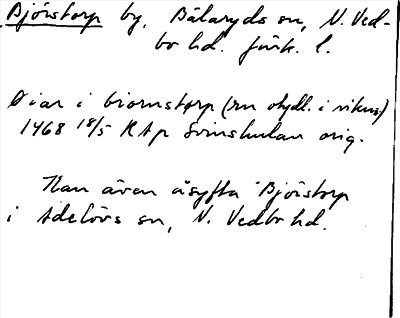 Björstorp by, Bälaryds sn, N. Ved-
bo hd. Jönk. l.
Øiar i biornstorp (sn otydl. i mikrof)
1468 18/5 RAp Svinhulan orig.
Kan även åsyfta Björstorp
i Adelövs sn, N. Vedbo hd.